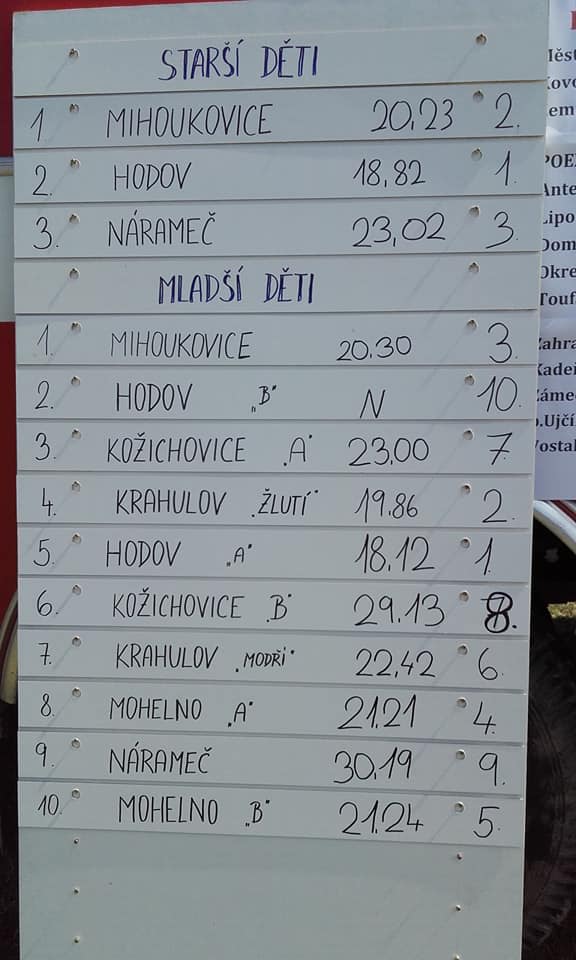 STARŠÍ DĚTI
1 MIHOUKOVICE 20,23 2.
2. HODOV 18,82 1.
3. NÁRAMEČ 23,02 3.
MLADŠÍ DĚTI
1. MIHOUKOVICE 20.30 3.
2. HODOV „B" N 10.
3. KOŽICHOVICE „A" 23,00 7.
4. KRAHULOV „ŽLUTÍ" 19.86 2.
5. HODOV „A" 18.12 1.
6. KOŽICHOVICE „B" 29.13 8.
7. KRAHULOV „MODŘÍ" 22,42 6.
8. MOHELNO „A" 21.21 4.
9. NÁRAMEČ 30.19 9.
10. MOHELNO „B" 21.24 5.